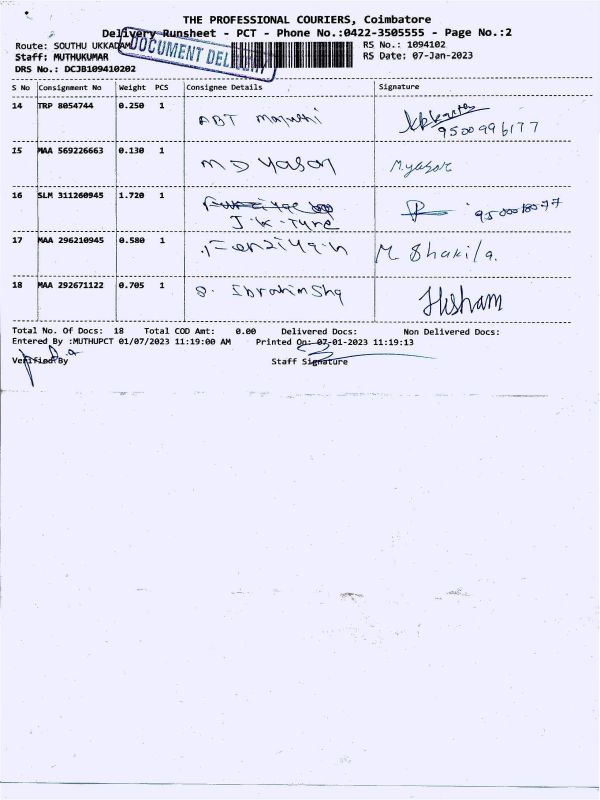 THE PROFESSIONAL COURIERS, Coimbatore
Delivery Runsheet - PCT - Phone No.:0422-3505555 - Page No.:2
Route: SOUTHU UKKADAM
DOCUMENT
RS No.: 1094102
Staff: MUTHUKUMAR
RS Date: 07-Jan-2023
DRS No.: DCJB109410202
S No Consignment No Weight PCS Consignee Details Signature
14 TRP 8054744 0.250 1 ABT Maruthi
9500996177
15 MAA 569226663 0.130 1 MD Yason M.yason
16 SLM 311260945 1.720 1
J.K. Tyre
17 MAA 296210945 0.580 1 M Shakila.
18 MAA 292671122 0.705 1 S. Ibrahimsha Hisham
Total No. Of Docs: 18 Total COD Amt: 0.00 Delivered Docs: Non Delivered Docs:
Entered By :MUTHUPCT 01/07/2023 11:19:00 AM Printed On: 07-01-2023 11:19:13
Verified By Staff Signature